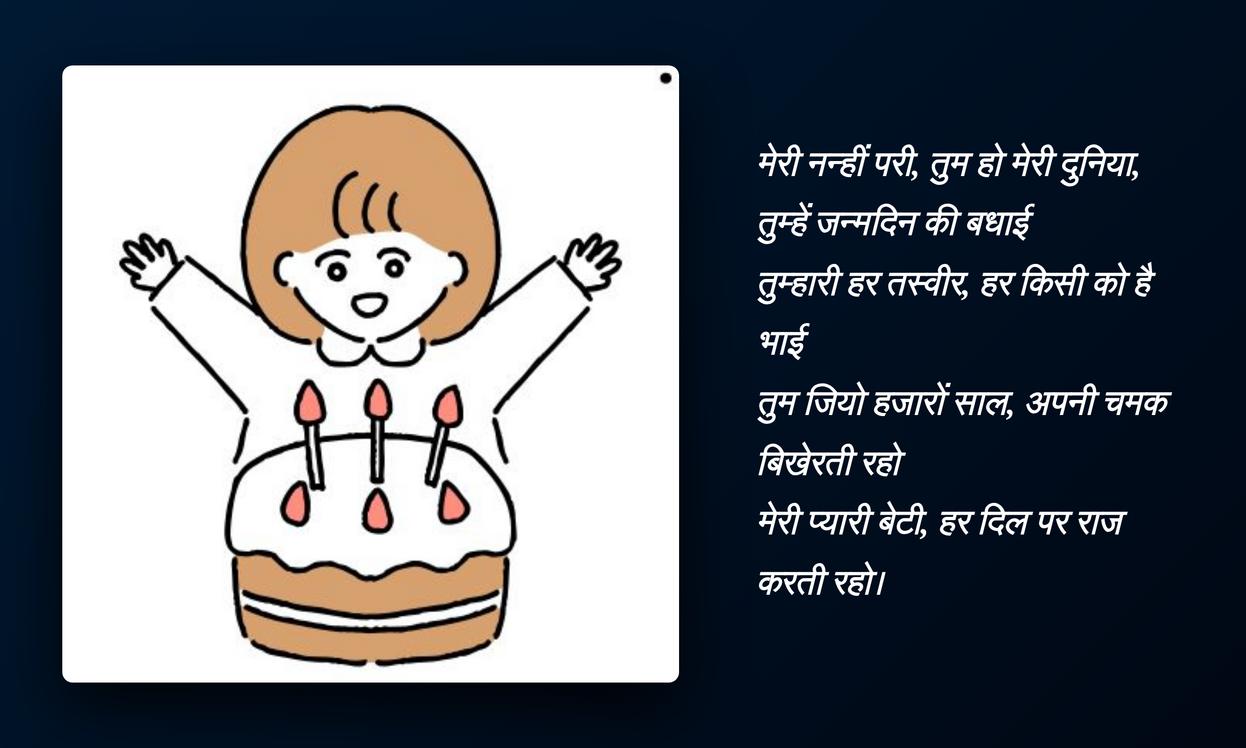 मेरी नन्हीं परी, तुम हो मेरी दुनिया,
तुम्हें जन्मदिन की बधाई
तुम्हारी हर तस्वीर, हर किसी को है
भाई
तुम जियो हजारों साल, अपनी चमक
बिखेरती रहो
मेरी प्यारी बेटी, हर दिल पर राज
करती रहो।